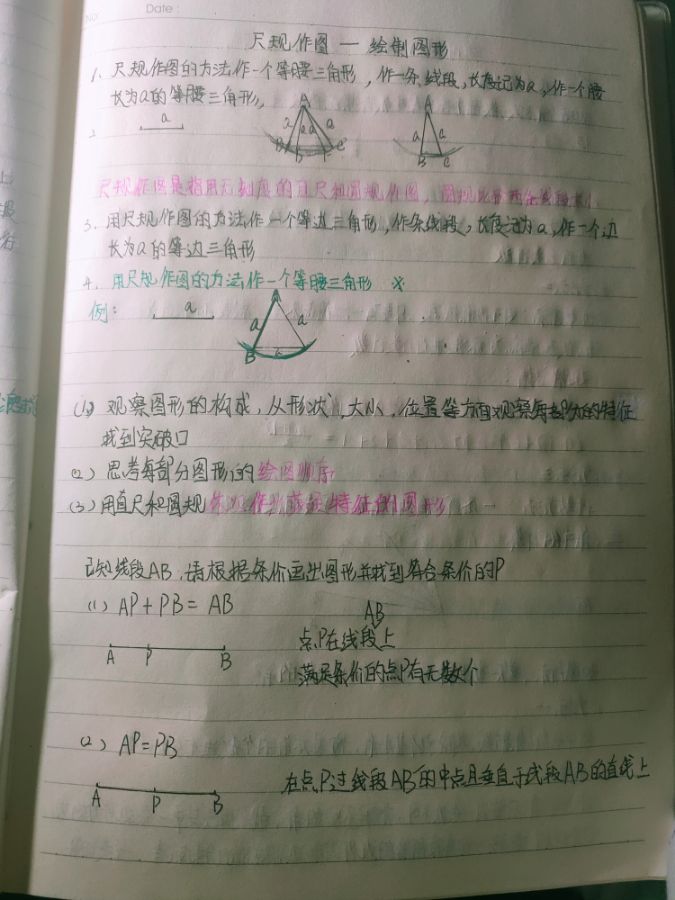 NO.
Date:
尺规作图 — 绘制图形
1、尺规作图的方法作一个等腰三角形，作一条线段，长度记为a，作一个腰
长为a的等腰三角形，
2
a
A
a
a
a
B
b
C
A
a
a
B
C
尺规作图是指用无刻度的直尺和圆规作图，圆规
3、用尺规作图的方法作一个等边三角形，作条线段，长度记为a，作一个边
长为a的等边三角形
4、用尺规作图的方法作一个等腰三角形 ※
例：
a
A
a
a
B
a
(1) 观察图形的构成，从形状、大小、位置等方面观察每部分的特征
找到突破口
(2) 思考每部分图形的绘图顺序
(3) 用直尺和圆规 特征的图形
已知线段AB，请根据条价画出图形并找到符合条价的P
(1) AP+PB=AB
AB
点P在线段上
A P B
满足条价的点P有无数个
(2) AP=PB
在点P过线段AB的中点且垂直于线段AB的直线上
A P B